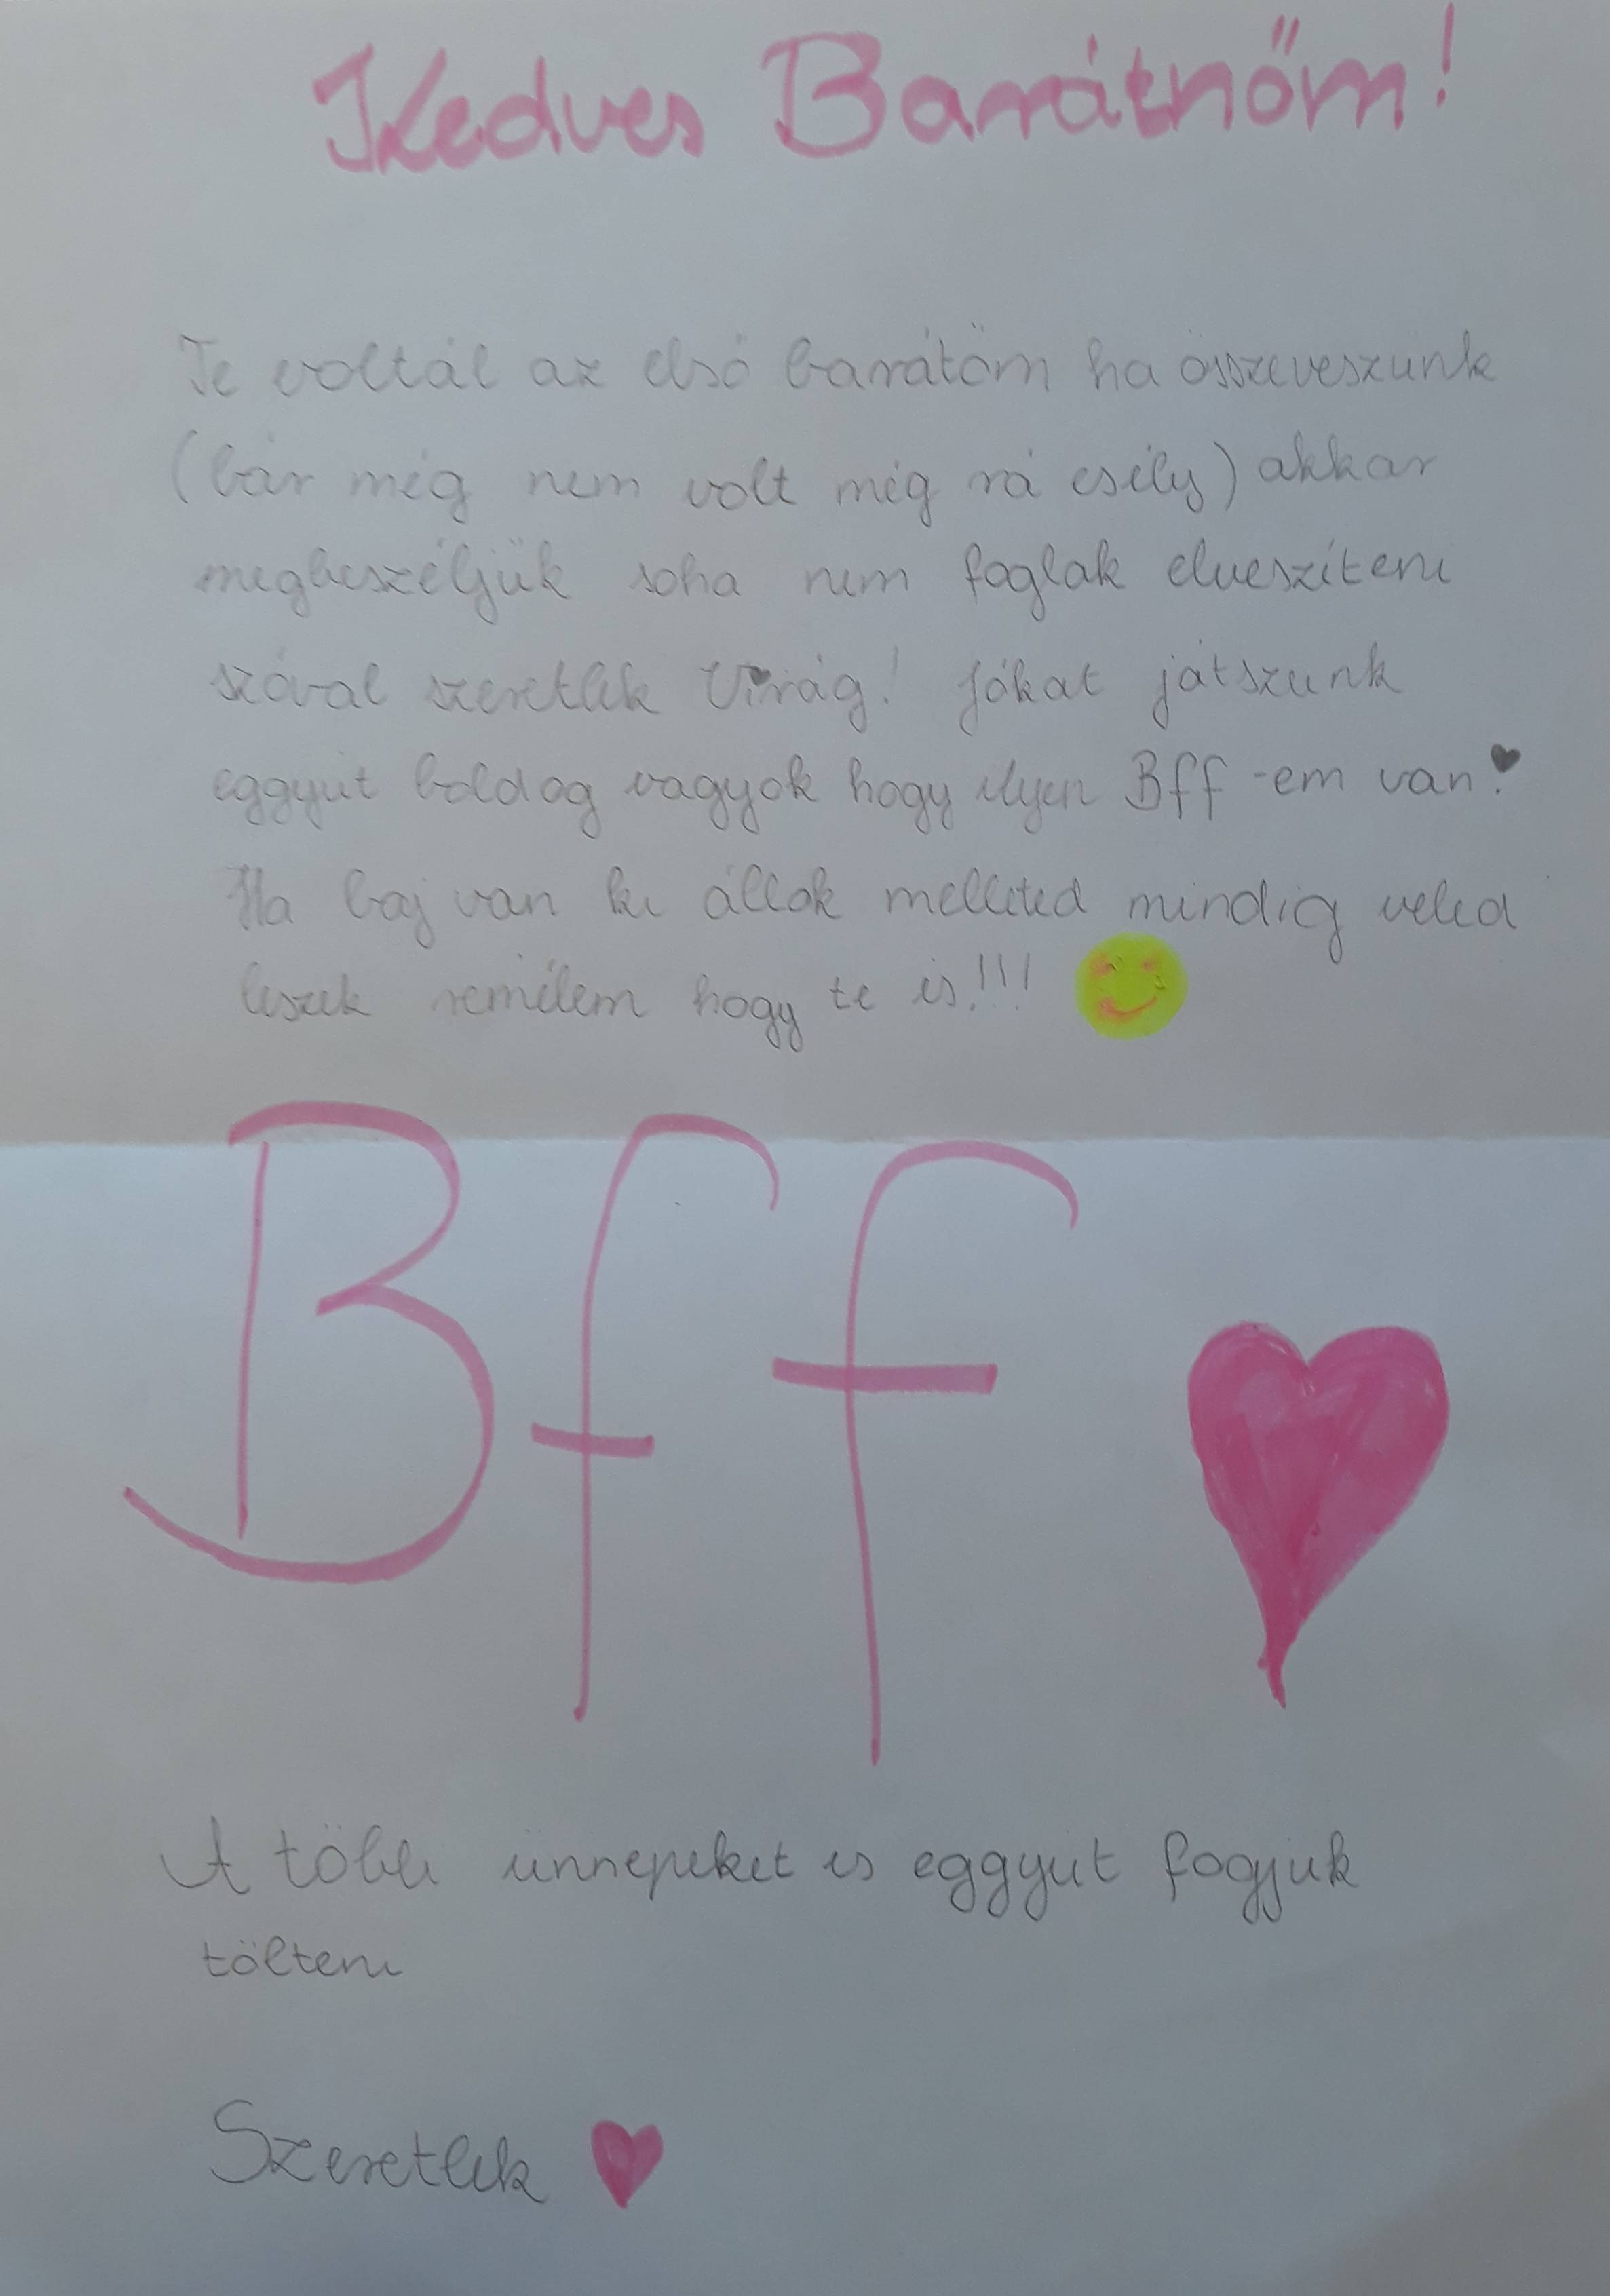 Kedves Barátnőm!
Te voltál az első barátöm ha összeveszunk
(bár még nem volt még rá esély) akkar
megbeszéljük soha nem foglak elveszíteni
szóval szeretlek Virág! Jókat játszunk
eggyüt boldog vagyok hogy ilyen Bff-em van!
Ha baj van ki állok melleted mindig veled
leszek remélem hogy te is!!!
Bff
A többi ünnepeket is eggyut fogjuk
tölteni
Szeretlek